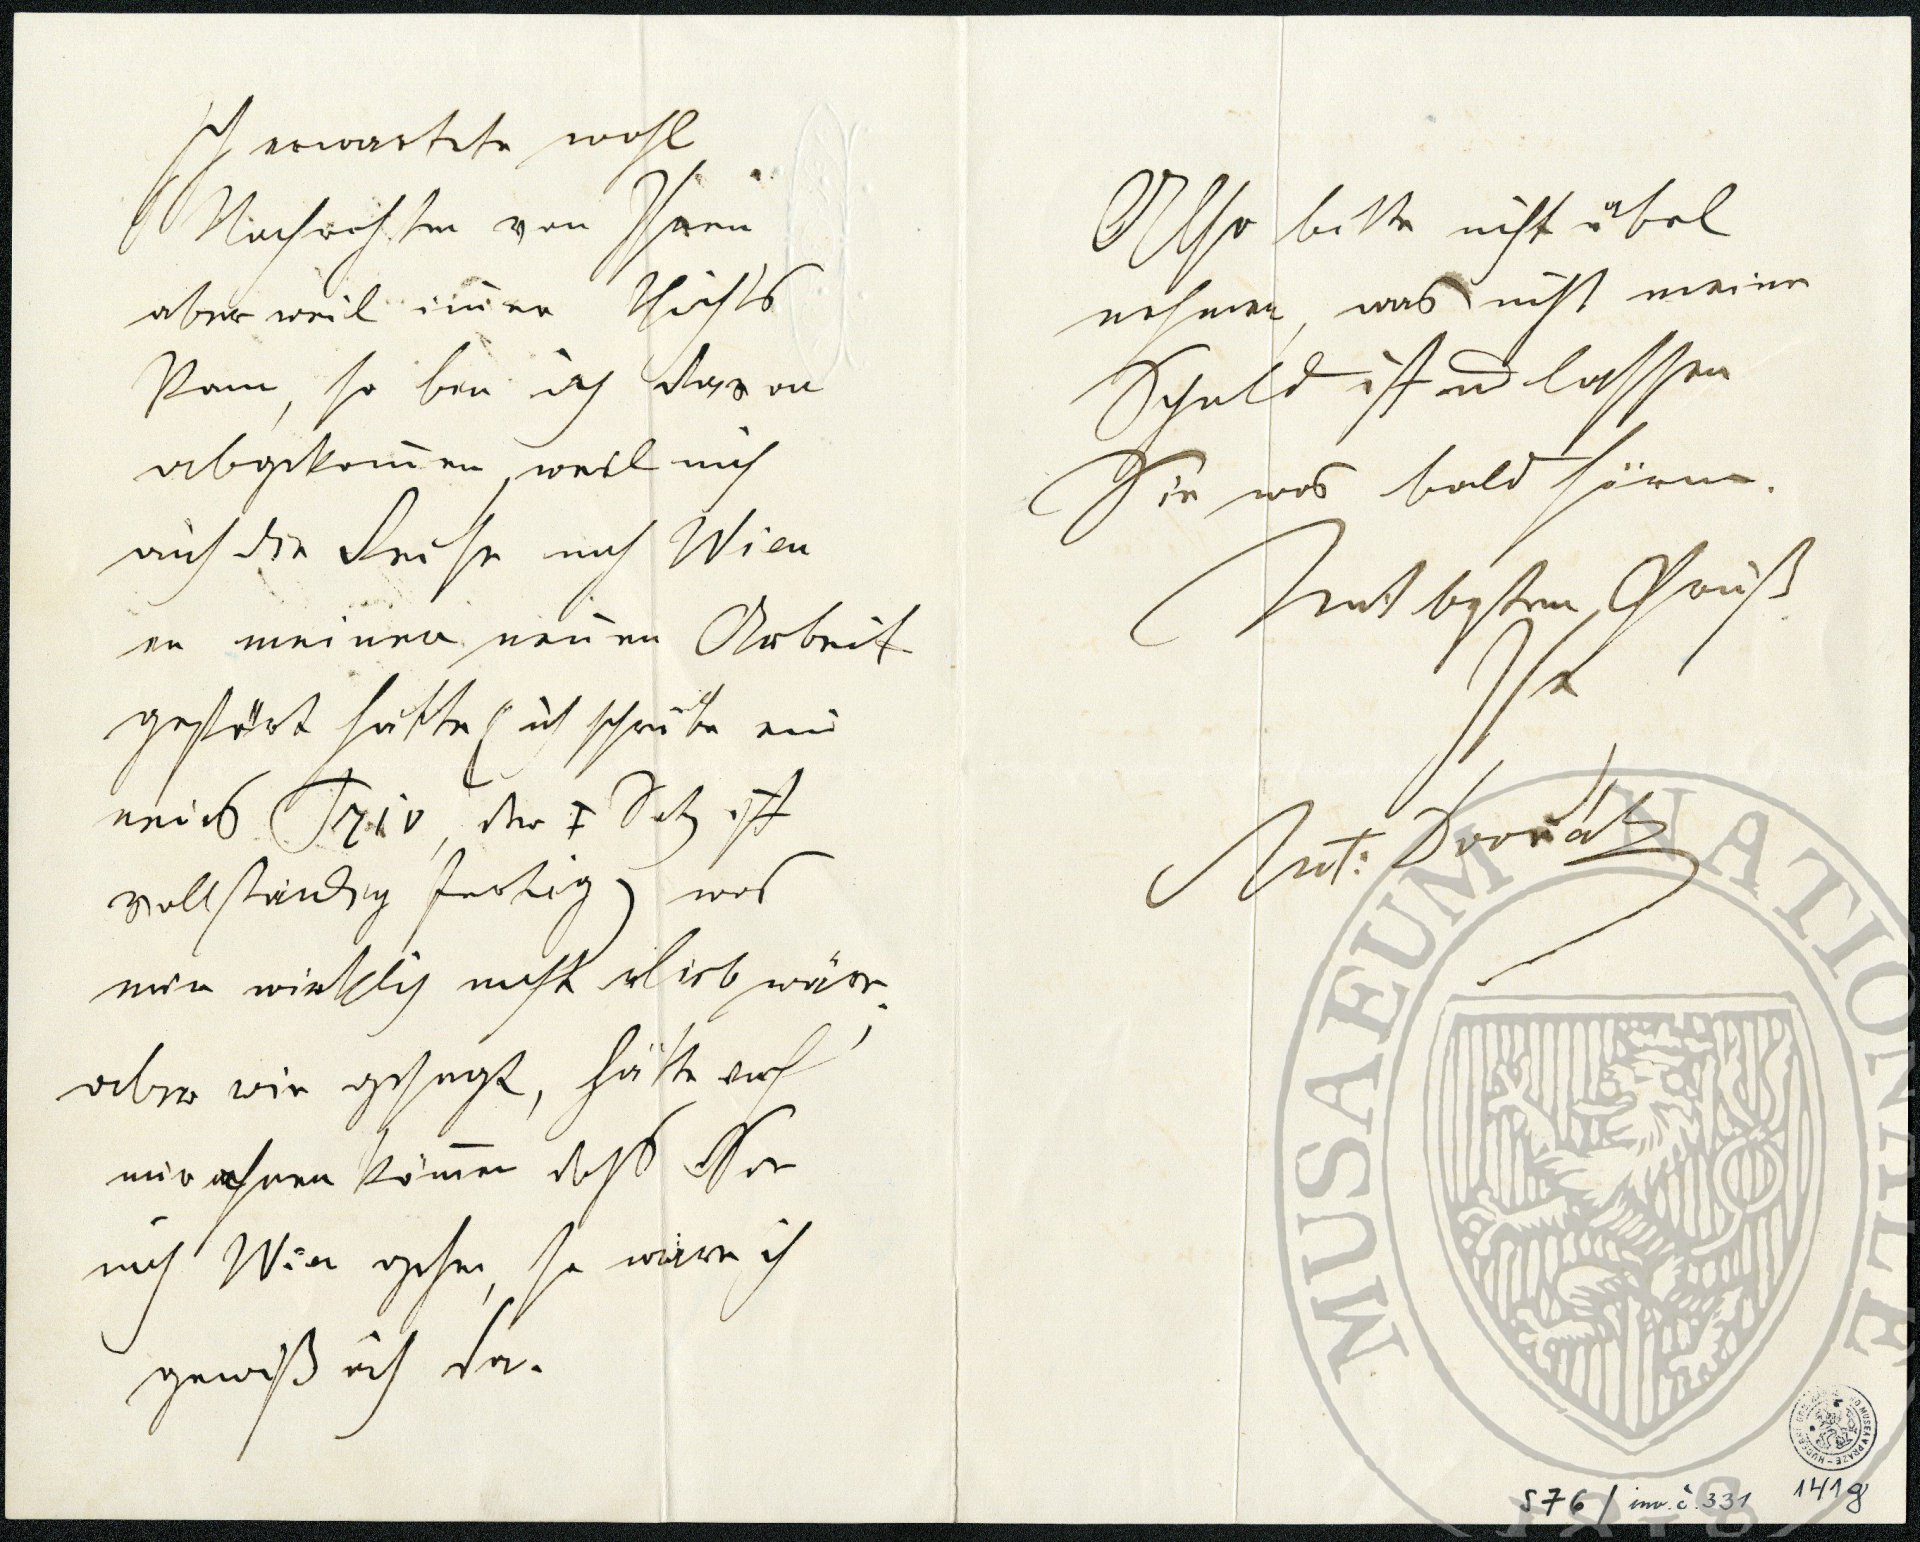 Ich erwartete wohl
Nachrichten von Ihnen
aber weil im̄er Nichts
kam, so bin ich davon
abgekom̄en, weil mich
auch die Reise nach Wien
in meiner neuen Arbeit
gestört hätte (ich schreibe ein
neues Trio, der I Satz ist
vollständig fertig) was
mir wirklich nicht lieb wäre;
aber wie gesagt, hätte ich
mir ahnen können daß Sie
nach Wien gehen, so wäre ich
gewiß auch da.
Also bitte nicht übel
nehmen, was nicht meine
Schuld ist und lassen
Sie was bald hören.
Mit bestem Gruß
Ihr
Ant: Dvořák
MUSAEUM NATIONALE
1818
S76/ inv. č. 331 141g